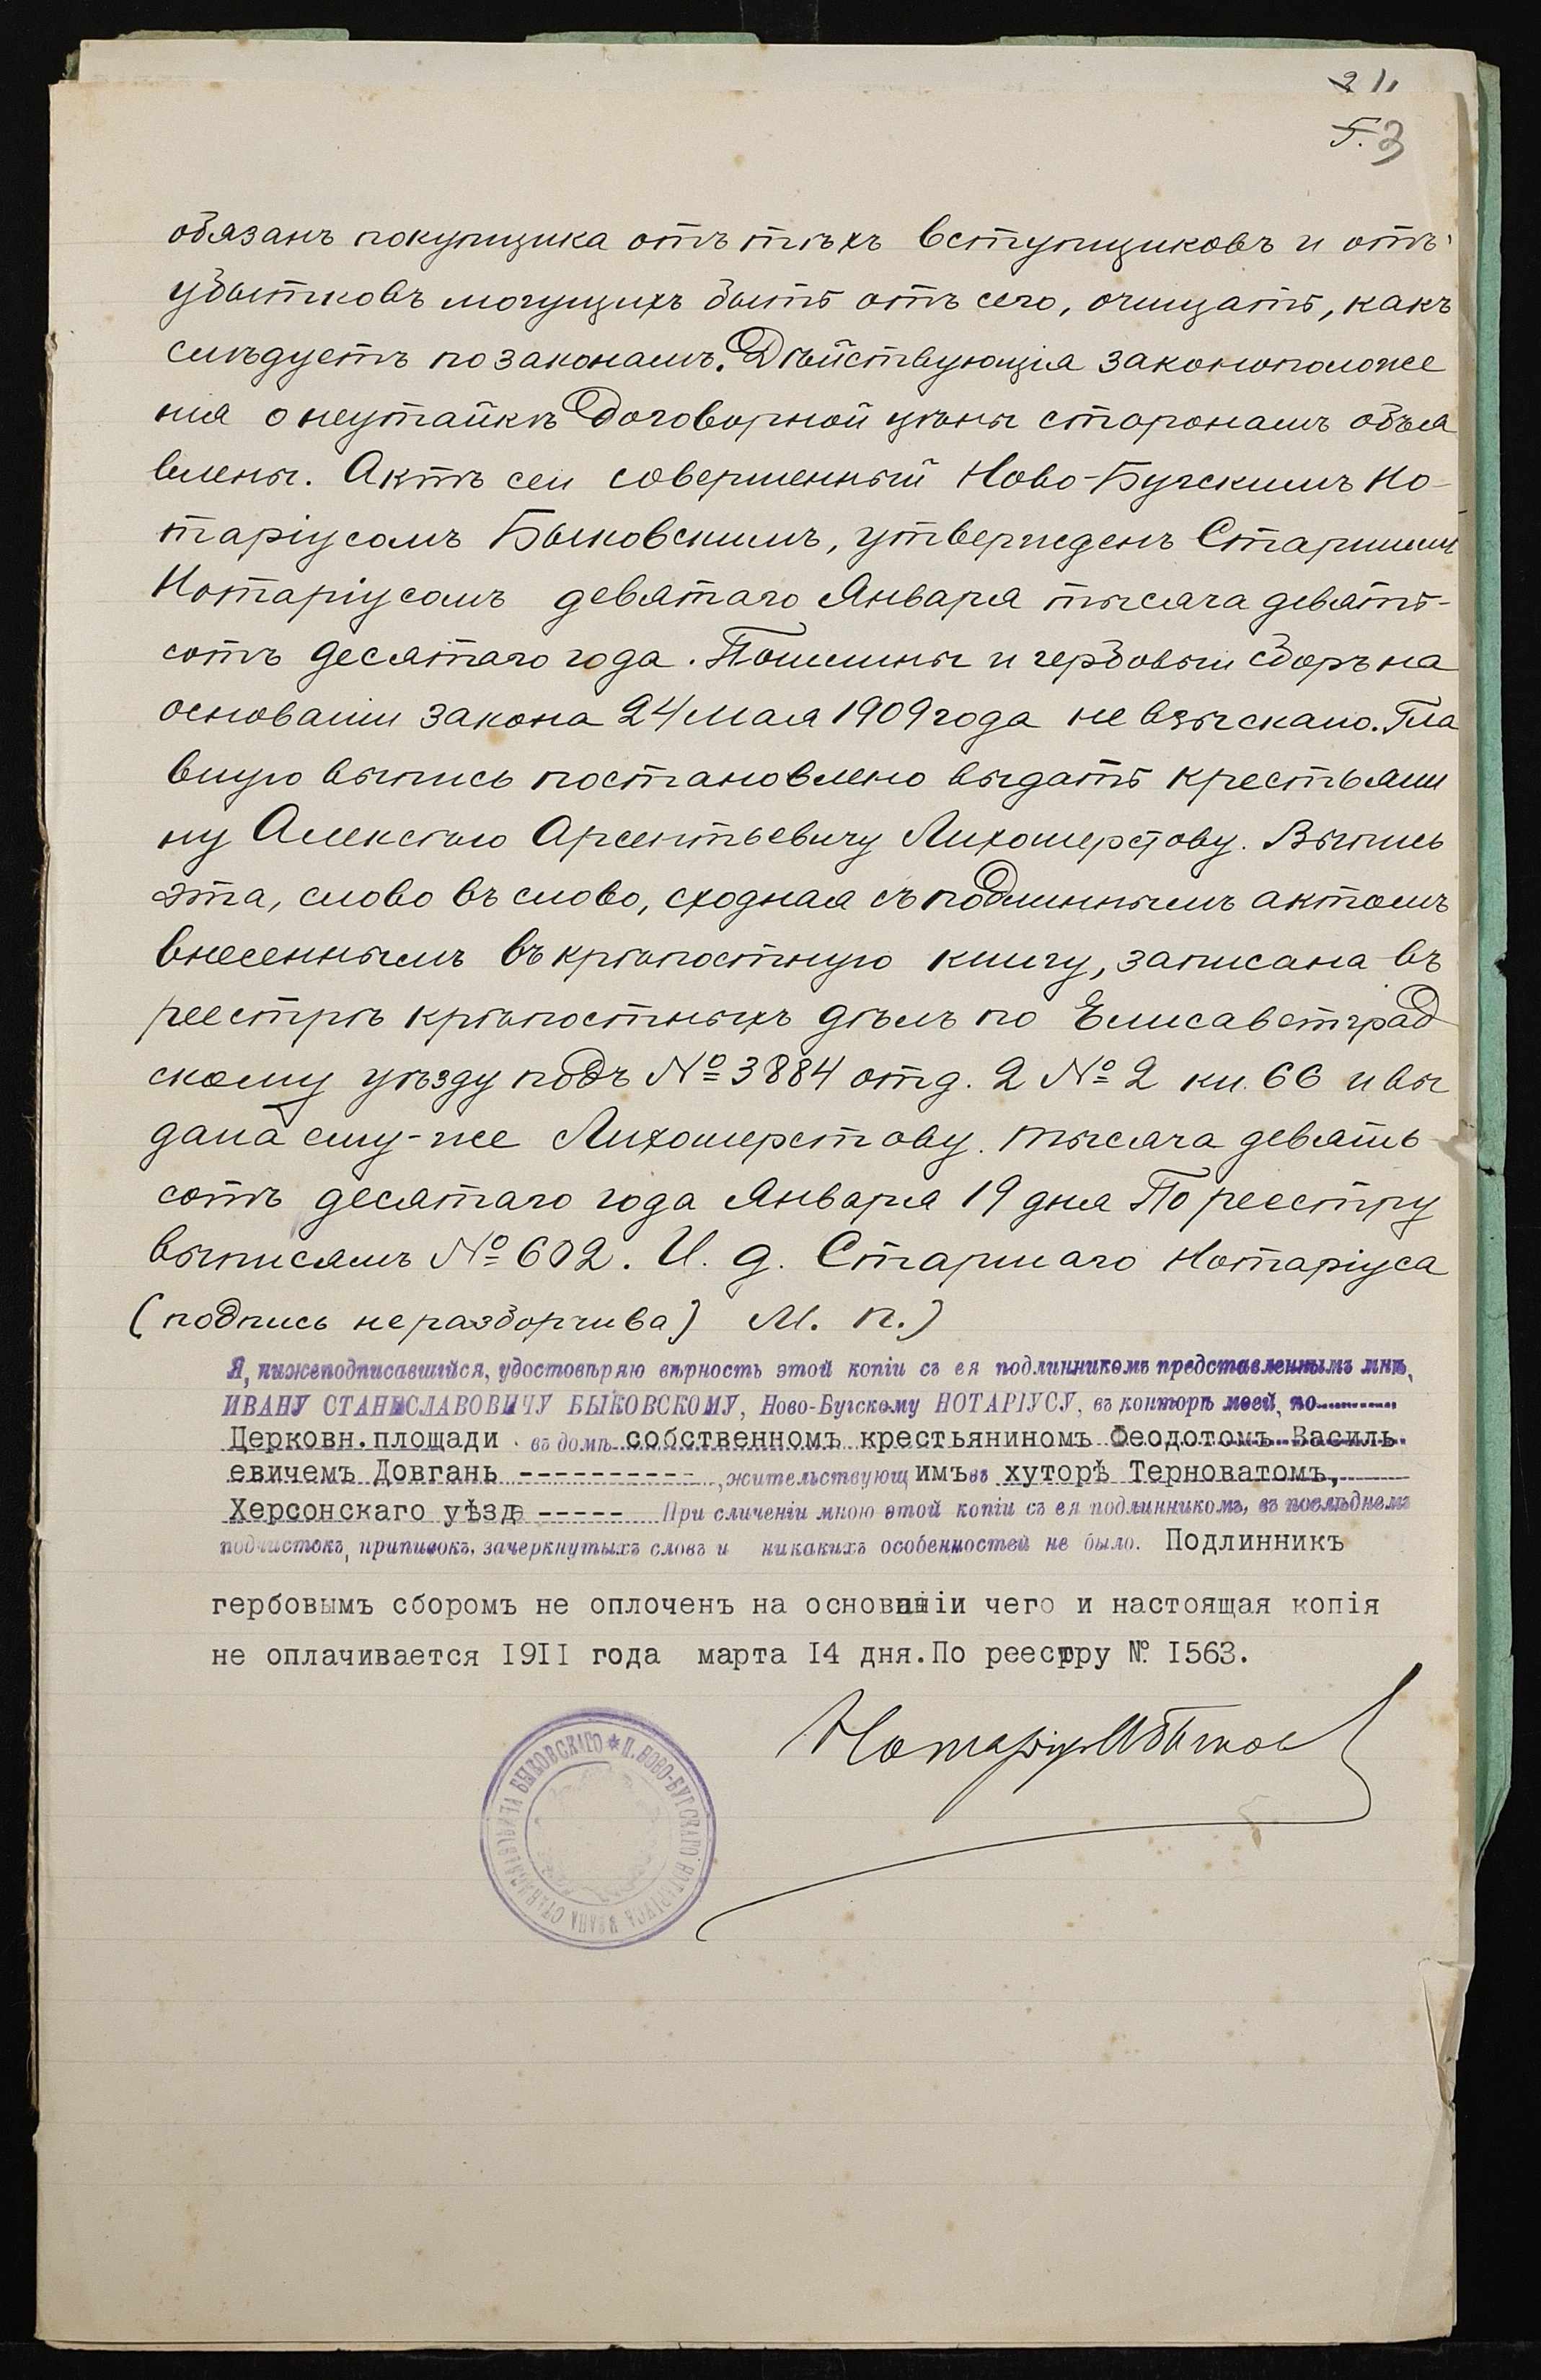 2 11
5. 3
обязанъ покупщика отъ тѣхъ вступщиковъ и отъ
убытковъ могущихъ быть отъ сего, очищать, какъ
слѣдуетъ по законамъ. Дѣйствующія законоположе
нія о неутайкѣ договорной цѣны сторонамъ объя
влены. Актъ сей совершенный Ново-Бугскимъ Но-
таріусомъ Быковскимъ, утвержденъ Старшимъ
Нотаріусомъ девятаго Января тысяча девять-
сотъ десятаго года. Пошлины и гербовый сборъ на
основаніи закона 24 мая 1909 года не взыскано. Гла
вную выпись постановлено выдать крестьяни
ну Алексѣю Арсентьевичу Лихошерстову. Выпись
эта, слово въ слово, сходная съ подлиннымъ актомъ
внесеннымъ въ крѣпостную книгу, записана въ
реестрѣ крѣпостныхъ дѣлъ по Елисаветград
скому уѣзду подъ № 3884 отд. 2 № 2 кн. 66 и вы
дана ему-же Лихошерстову. тысяча девять
сотъ десятаго года Января 19 дня По реестру
выписямъ № 602. И. д. Старшаго Нотаріуса
(подпись неразборчива) М. п.)
Я, нижеподписавшійся, удостовѣряю вѣрность этой копіи съ ея подлинникомъ представленнымъ мнѣ,
ИВАНУ СТАНИСЛАВОВИЧУ БЫКОВСКОМУ, Ново-Бугскому НОТАРІУСУ, въ конторѣ моей, по
Церковн.площади въ домѣ собственномъ крестьяниномъ Феодотомъ Василь
евичемъ Довгань ----------, жительствующимъ въ хуторѣ Терноватомъ,
Херсонскаго уѣзда ----- При сличеніи мною этой копіи съ ея подлинникомъ, въ послѣднемъ
подчистокъ, приписокъ, зачеркнутыхъ словъ и никакихъ особенностей не было. Подлинникъ
гербовымъ сборомъ не оплоченъ на основаніи чего и настоящая копія
не оплачивается 1911 года марта 14 дня.По реестру № 1563.
Нотаріусъ ИБыков
И. НОВО-БУГСКАГО НОТАРІУСА ИВАНА СТАНИСЛАВОВИЧА БЫКОВСКАГО *